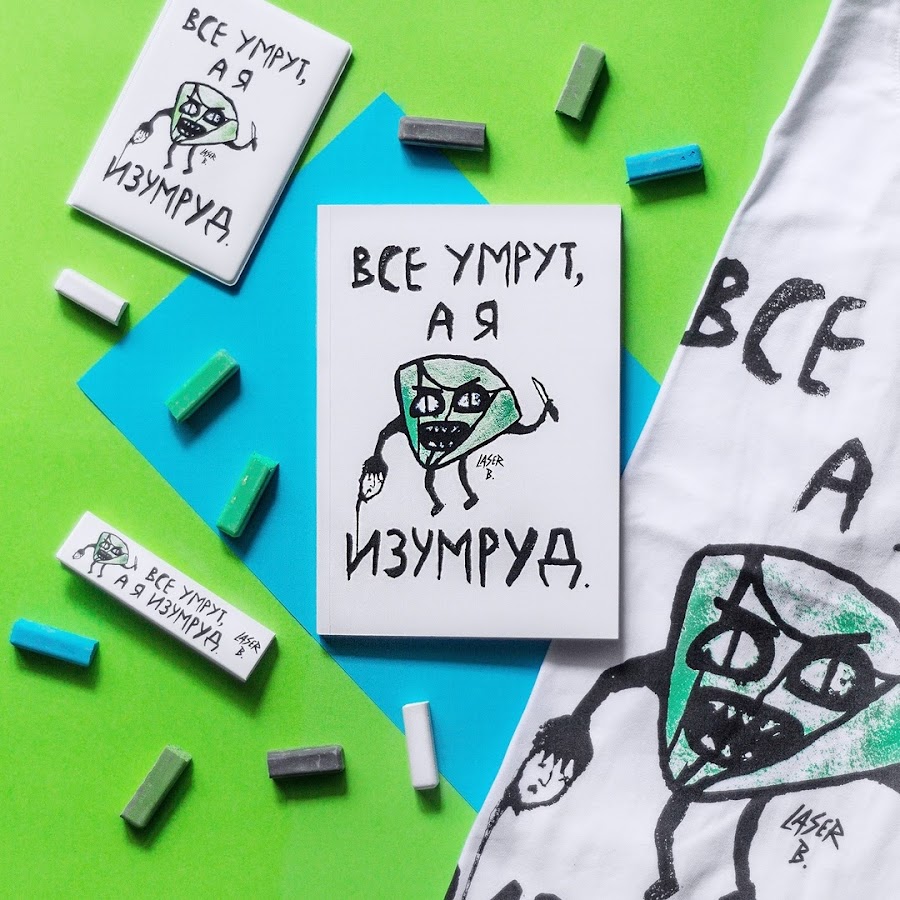 ВСЕ УМРУТ,
А Я
LASER
B.
ИЗУМРУД.
ВСЕ УМРУТ,
А Я
LASER
B.
ИЗУМРУД.
ВСЕ
А
LASER
B.
ВСЕ УМРУТ,
А Я ИЗУМРУД.
LASER
B.